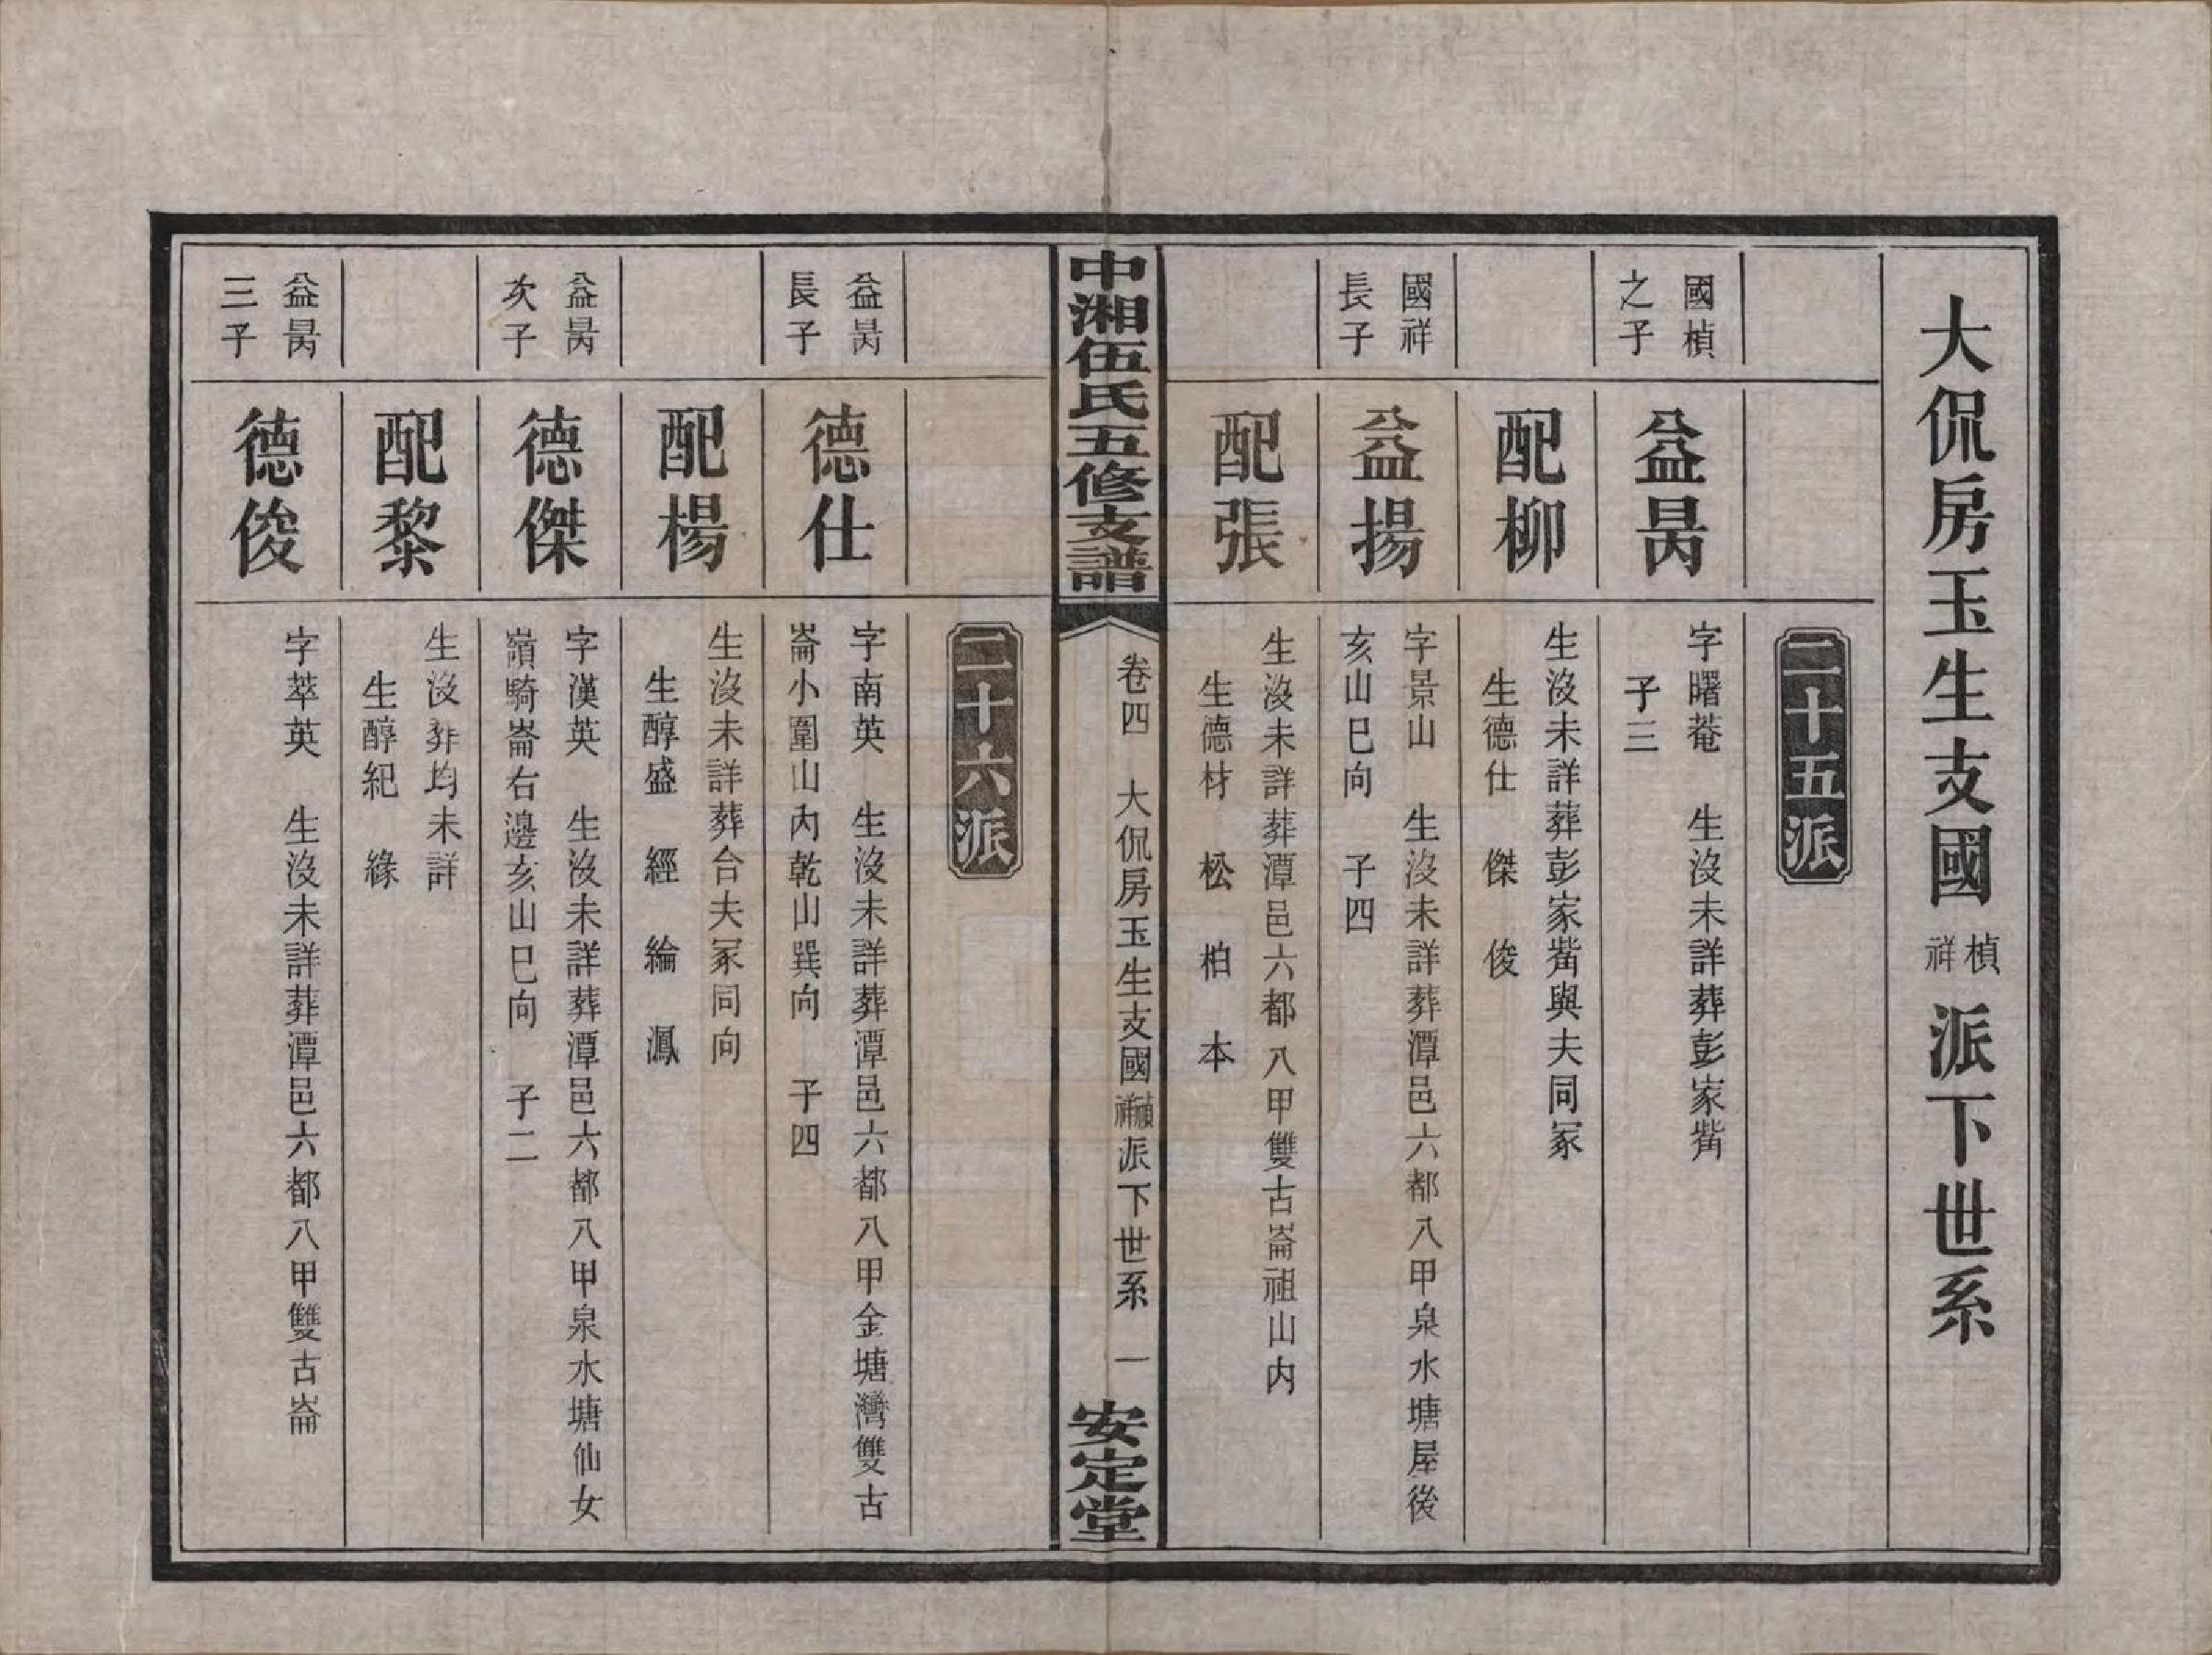 大侃房玉生支國楨祥派下世系
二十五派
國楨
之子
益昺
字曙菴　生沒未詳葬彭家觜
子三
配柳
生沒未詳葬彭家觜與夫同冢
生德仕　傑　俊
國祥
長子
益揚
字景山　生沒未詳葬潭邑六都八甲泉水塘屋後
亥山巳向　子四
配張
生沒未詳葬潭邑六都八甲雙古崙祖山內
生德材　松　柏　本
中湘伍氏五修支譜
卷四　大侃房玉生支國楨祥派下世系　一
安定堂
二十六派
益昺
長子
德仕
字南英　生沒未詳葬潭邑六都八甲金塘灣雙古
崙小圍山內乾山巽向　子四
配楊
生沒未詳葬合夫冢同向
生醇盛　經　綸　鳳
益昺
次子
德傑
字漢英　生沒未詳葬潭邑六都八甲泉水塘仙女
嶺騎崙右邊亥山巳向　子二
配黎
生沒葬均未詳
生醇紀　緣
益昺
三子
德俊
字萃英　生沒未詳葬潭邑六都八甲雙古崙